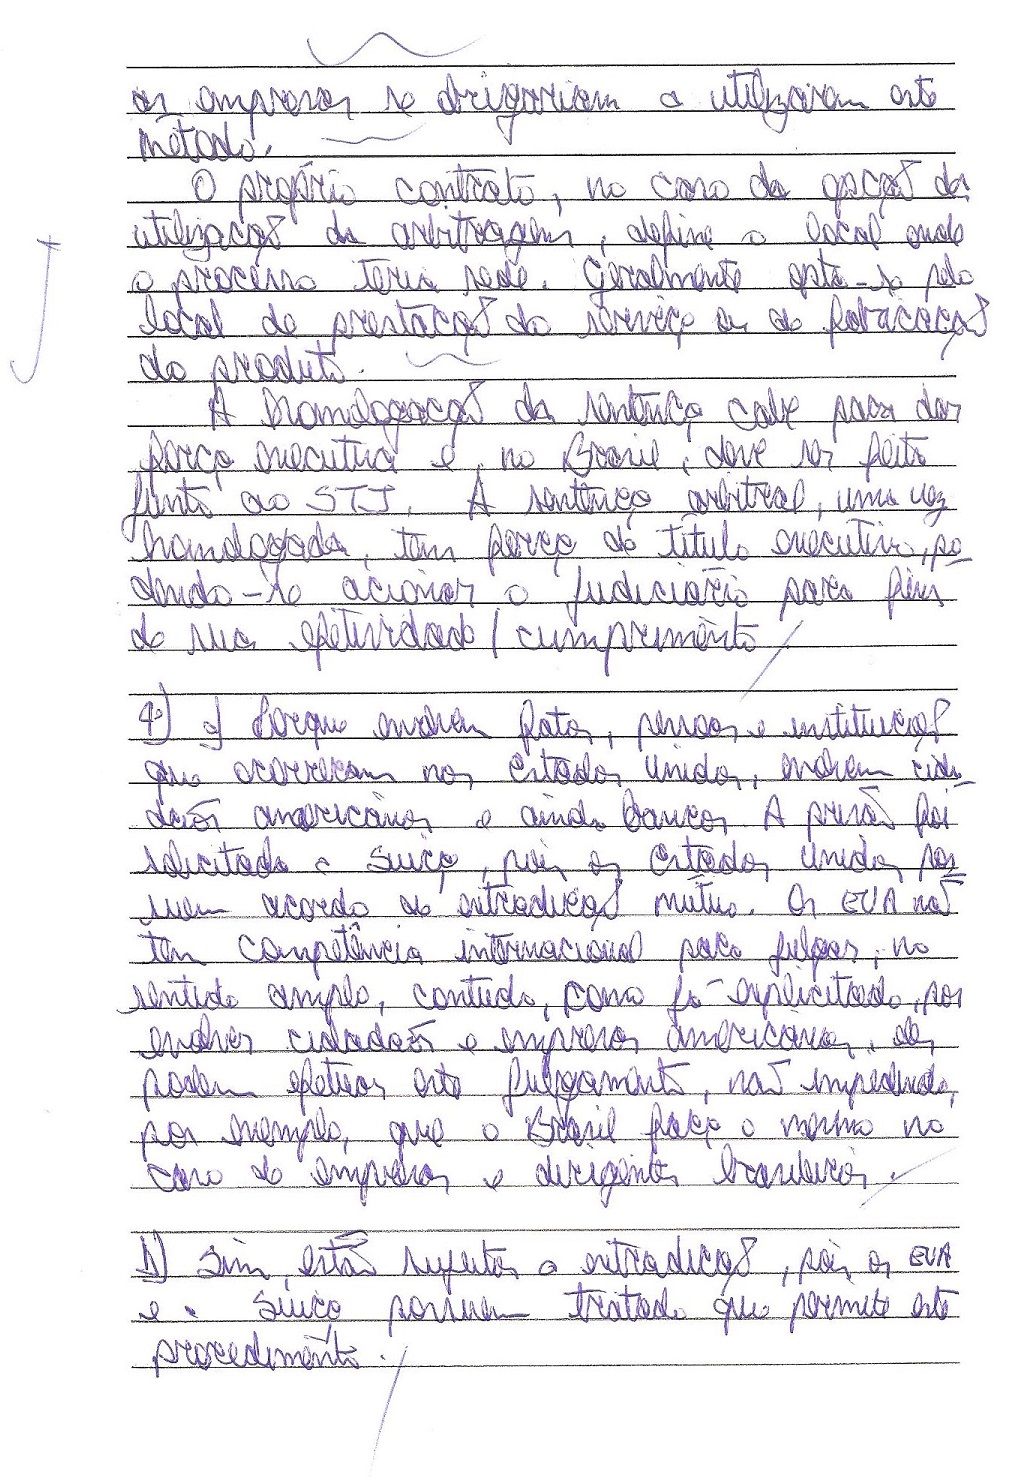 as empresas se obrigariam a utilizarem este
método.
O próprio contrato, no caso da opção da
utilização da arbitragem, define o local onde
o processo teria sede. Geralmente opta-se pelo
local de prestação do serviço ou de fabricação
do produto.
A homologação da sentença cabe para dar
força executiva e, no Brasil, deve ser feita
junto ao STJ. A sentença arbitral, uma vez
homologada, tem força de título executivo, po
dendo-se acionar o judiciário para fins
de sua efetividade / cumprimento
4º) a) Porque envolvem fatos, pessoas e instituições
que ocorreram nos Estados Unidos, envolvem cida
dãos americanos e ainda bancos. A prisão foi
solicitada a Suíça, pois os Estados Unidos pos
suem acordo de extradição mútuo. Os EUA não
tem competência internacional para julgar, no
sentido amplo, contudo, como já explicitado, por
envolver cidadãos e empresas americanas, eles
podem efetuar este julgamento, não impedindo,
por exemplo, que o Brasil faça o mesmo no
caso de empresas e dirigentes brasileiros.
b) Sim, estão sujeitos a extradição, pois os EUA
e a Suíça possuem tratado que permite este
procedimento.